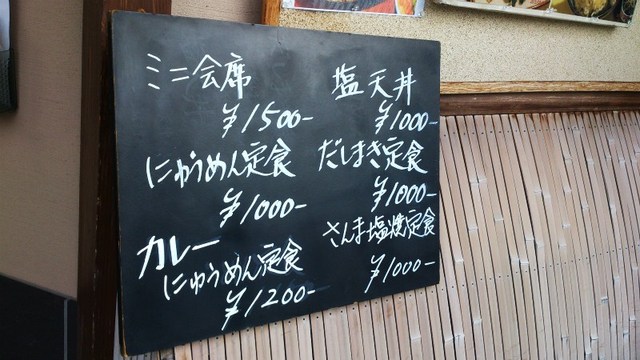 ミニ会席
¥1500-
にゅうめん定食
¥1000-
カレー
にゅうめん定食
¥1200-
塩天丼
¥1000-
だしまき定食
¥1000-
さんま塩焼定食
¥1000-